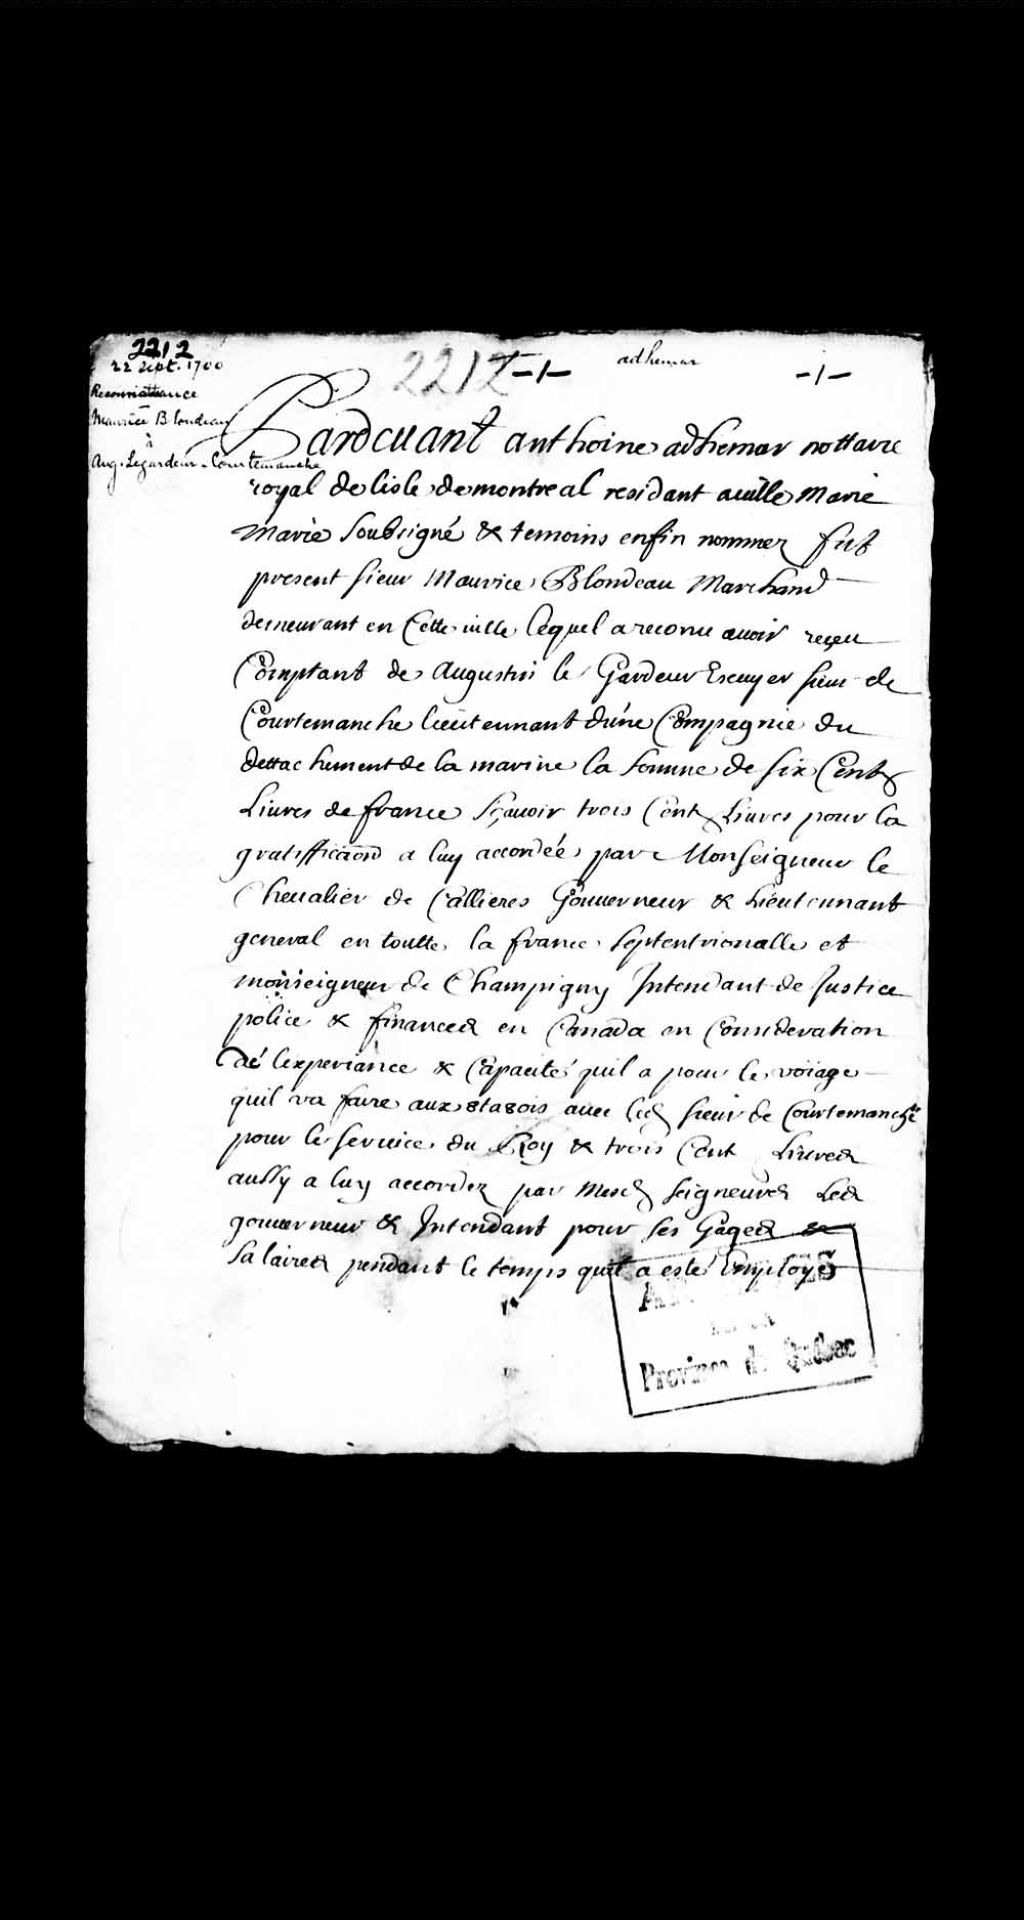 2212
22 Sept. 1700
Reconnaissance
Maurice Blondeau
à
Aug. Legardeur-Courtemanche
2212 -1-
adhemar
-1-
Pardeuant anthoine adhemar nottaire
royal de lisle de montreal residant auille Marie
Marie soubsigné & temoins enfin nommez fut
present sieur Maurice Blondeau Marchand
demeurant en Cette uille lequel a reconu auoir reçeu
Comptant de Augustin le Gardeur Escuyer sieur de
Courtemanche lieutennant d'une Compagnie du
dettachement de la marine la somme de six Cents
Liures de france sçauoir trois Cents Liures pour la
gratiffica͠on a luy accordée par Monseigneur le
Cheualier de Callieres Gouuerneur & Lieutennant
general en toutte la france septentrionalle et
monseigneur de Champigny Intendant de Justice
police & finances en Canada en Consideration
de l'experiance & Capacité quil a pour le voiage
quil va faire aux 8ta8ois auec led sieur de Courtemanche
pour le seruice du Roy & trois Cent Liures
aussy a luy accordez par Mesd seigneurs Les
gouuerneur & Intendant pour ses Gages &
salaires pendant le temps quil a esté Employé
Province de Québec